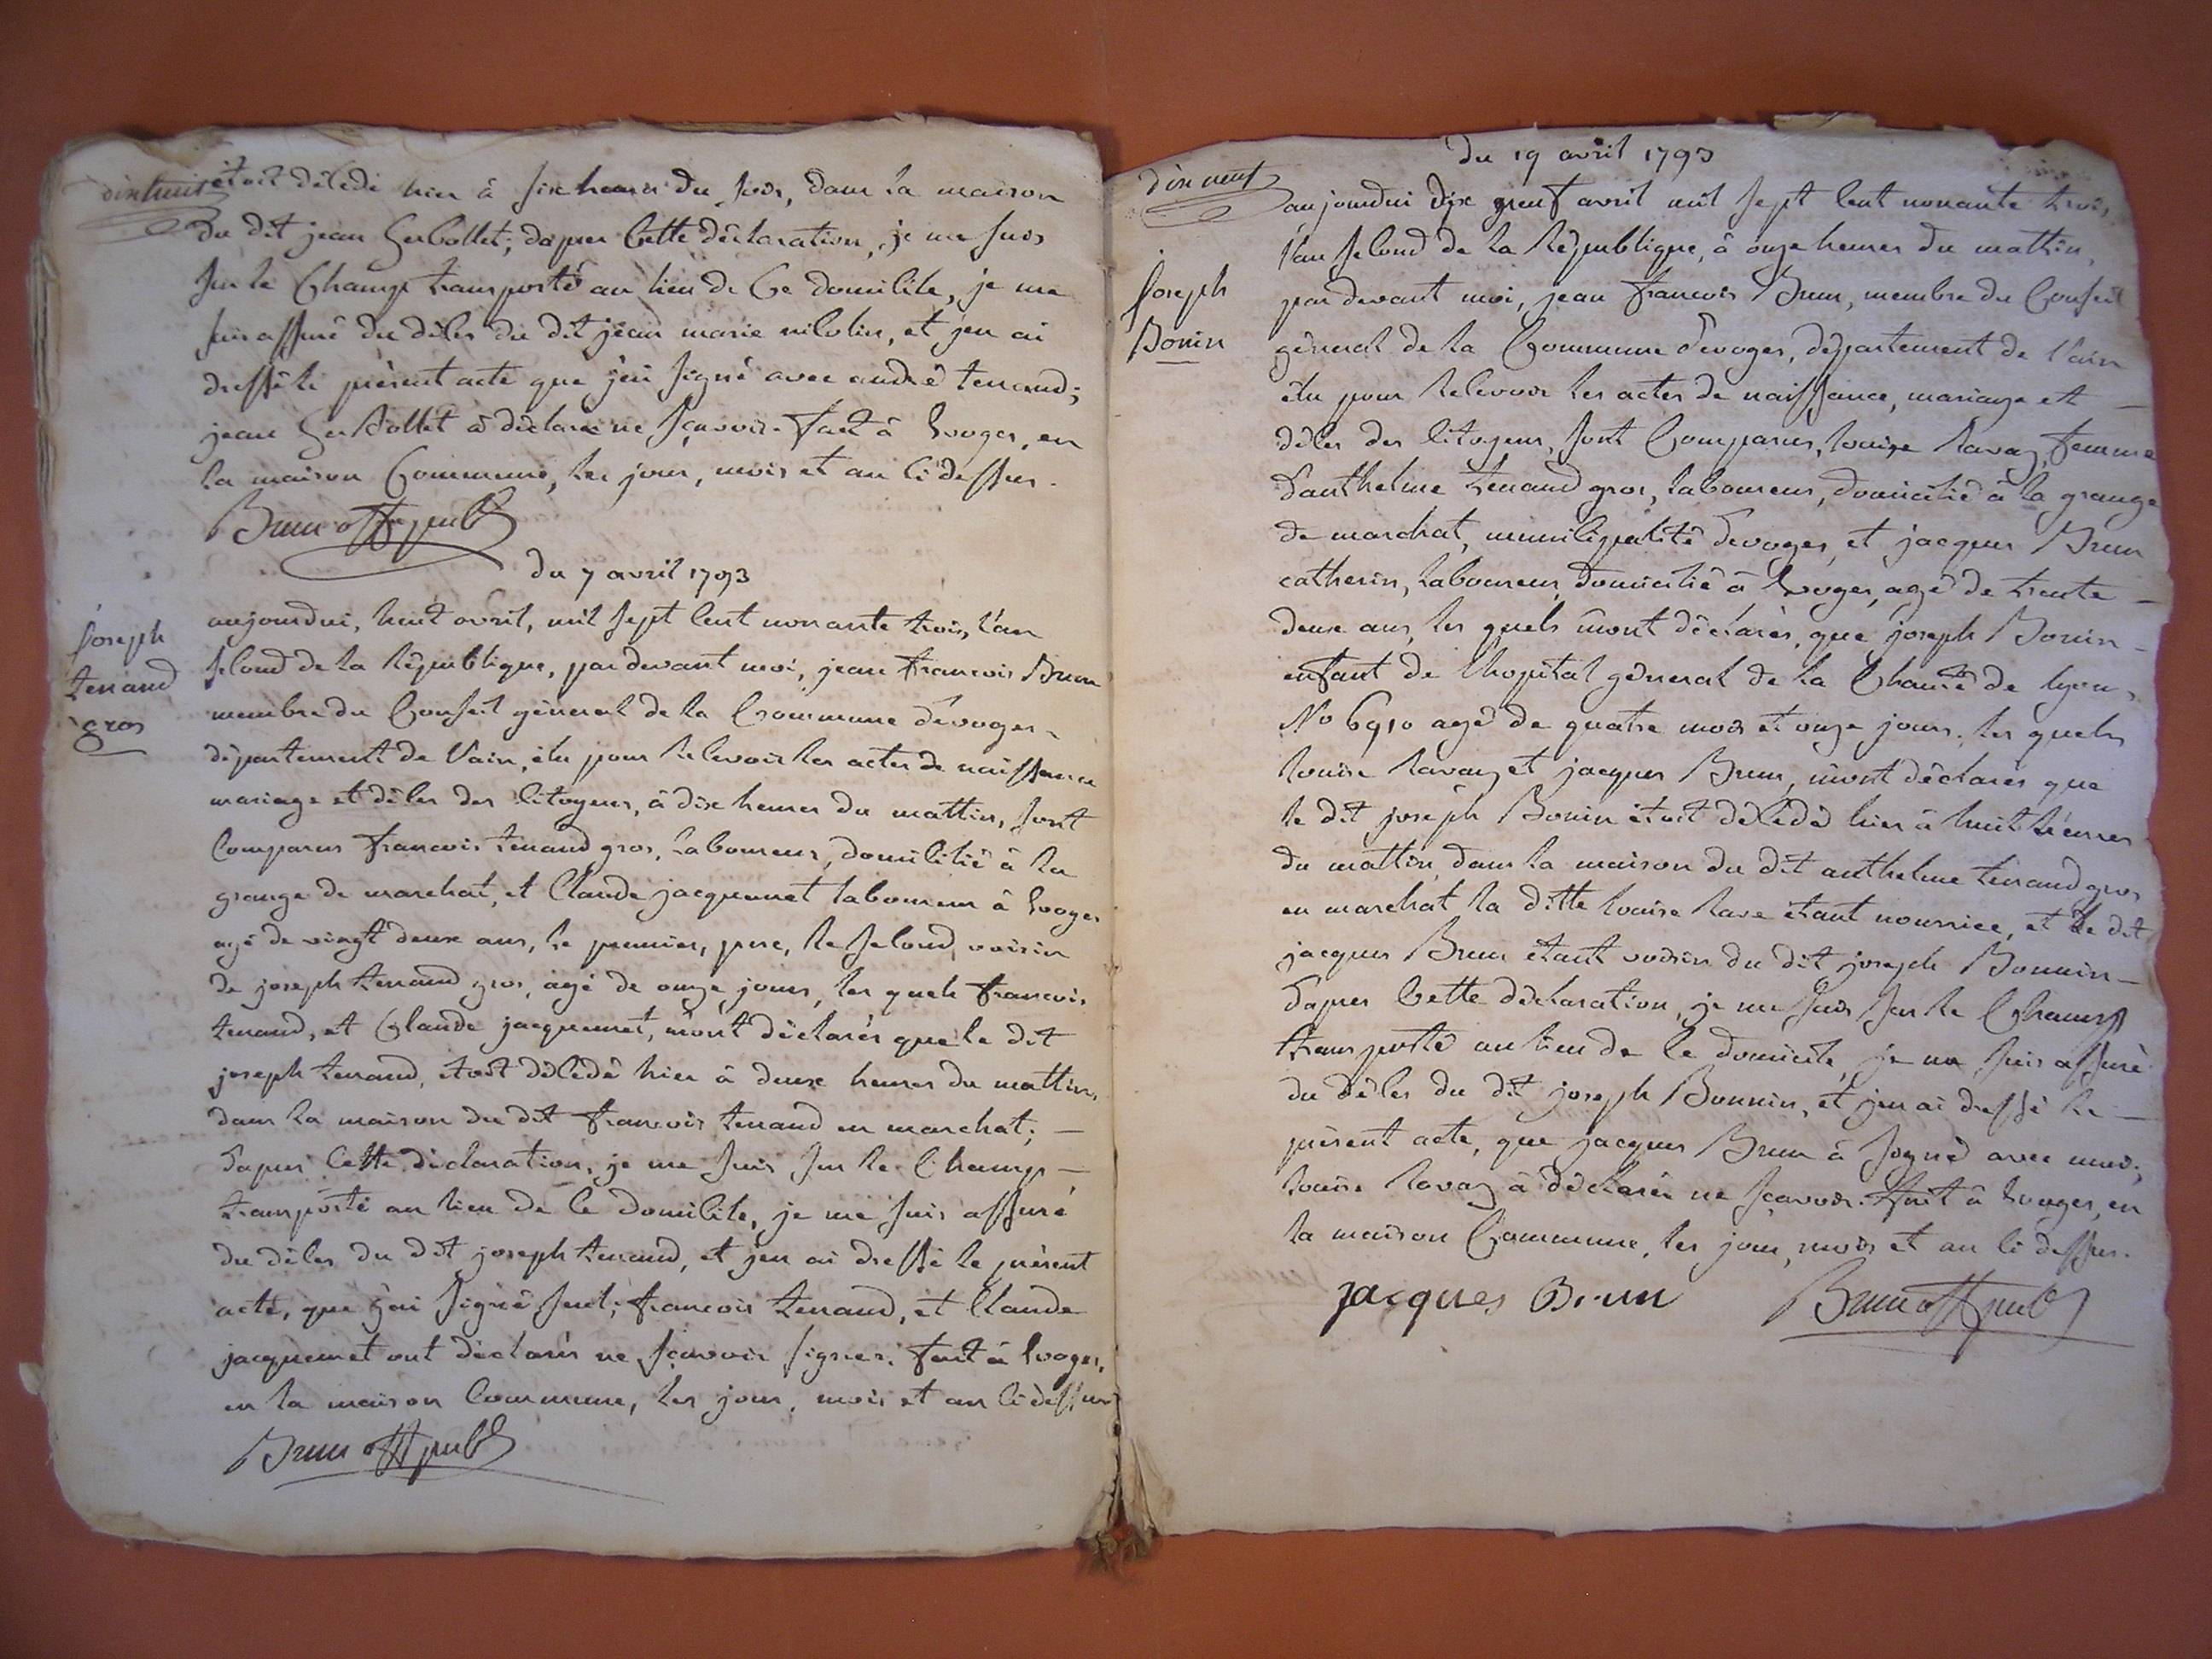 dix huit
étoit décedé hier à six heures du soir, dans la maison
du dit jean Gerbollet; daprès Cette déclaration, je me suis
sur le Champ transporté au lieu de Ce domicile, je me
suis assuré du décès du dit jean marie nicolin, et jen ai
dressé le présent acte que j'ai signé avec andré tenand;
jean Gerbollet a déclaré ne sçavoir. fait à Evoges, en
la maison Commune, les jour, mois et an ci dessus.
Brun off publ
du 7 avril 1793
joseph
tenand
gros
aujourdui, huit avril, mil sept cent nonante trois, l'an
second de la république, par devant moi, jean francois Brun
membre du Conseil géneral de la Commune d'evoges
département de l'ain, élu pour recevoir les actes de naissance
mariage et décès des citoyens, à dix heures du mattin, sont
comparus francois tenand gros, laboureur, domicilié à la
grange de marchat, et Claude jacquemet laboureur à Evoges
agé de vingt deux ans, le premier, pere, le second, voisin
de joseph tenand gros, agé de onze jours, les quels francois
tenand, et Claude jacquemet, m'ont déclarés que le dit
joseph tenand, étoit décedé hier à deux heures du mattin,
dans la maison du dit francois tenand en marchat;
dapres Cette déclaration, je me suis sur le Champ
transporté au lieu de ce domicile, je me suis assuré
du décès du dit joseph tenand, et jen ai dressé le présent
acte, que j'ai signé seul; francois tenand, et Claude
jacquemet ont déclarés ne sçavoir signer. fait à Evoges,
en la maison Commune, les jour, mois et an ci dessus
Brun off publ
du 19 avril 1793
dix neuf
joseph
Bonin
aujourdui dix neuf avril mil sept cent nonante trois,
l'an second de la république, à onze heures du mattin,
par devant moi, jean francois Brun, membre du Conseil
géneral de la Commune d'evoges, département de l'ain
élu pour recevoir les actes de naissance, mariage et
décès des citoyens, sont Comparus, louise ravaz, femme
d'anthelme tenand gros, laboureur, domicilié à la grange
de marchat, municipalité d'evoges, et jacques Brun
catherin, laboureur, domicilié à Evoges, agé de trente
deux ans, les quels m'ont déclarés, que joseph Bonin
enfant de l'hopital géneral de la Charité de lyon,
No 6910 agé de quatre mois et onze jours. les quels
louise ravaz et jacques Brun, m'ont déclarés que
le dit joseph Bonin étoit décedé hier à huit heures
du mattin, dans la maison du dit anthelme tenand gros
en marchat la ditte louise rave étant nourrice, et le dit
jacques Brun étant voisin du dit joseph Bonnin
dapres Cette déclaration, je me suis sur le Champ
transporté au lieu de ce domicile, je me suis assuré
du décès du dit joseph Bonnin, et jen ai dressé le
présent acte, que jacques Brun à signé avec moi;
louise ravaz à déclaré ne sçavoir. fait à Evoges, en
la maison Commune, les jour, mois et an ci dessus.
jacques Brun
Brun off publ